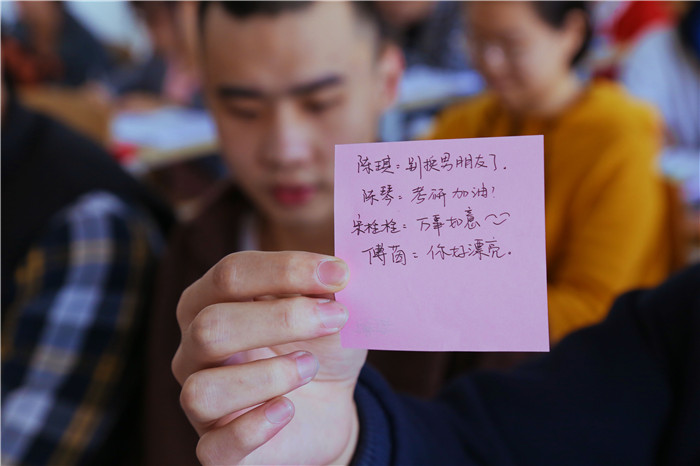 陈琪:别换男朋友了.
陈琴:考研加油!
宋栓栓:万事如意
傅茵:你好漂亮.